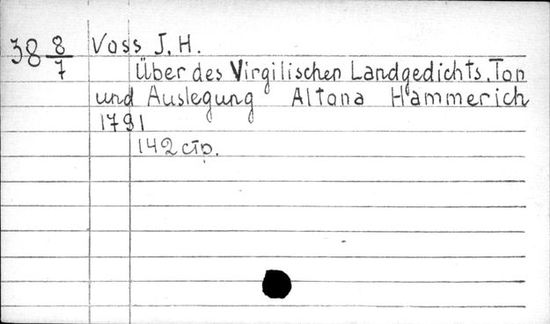 38 8/7 Voss J. H.
Über des Virgilischen Landgedichts. Ton
und Auslegung Altona Hammerich
1791
142 стр.